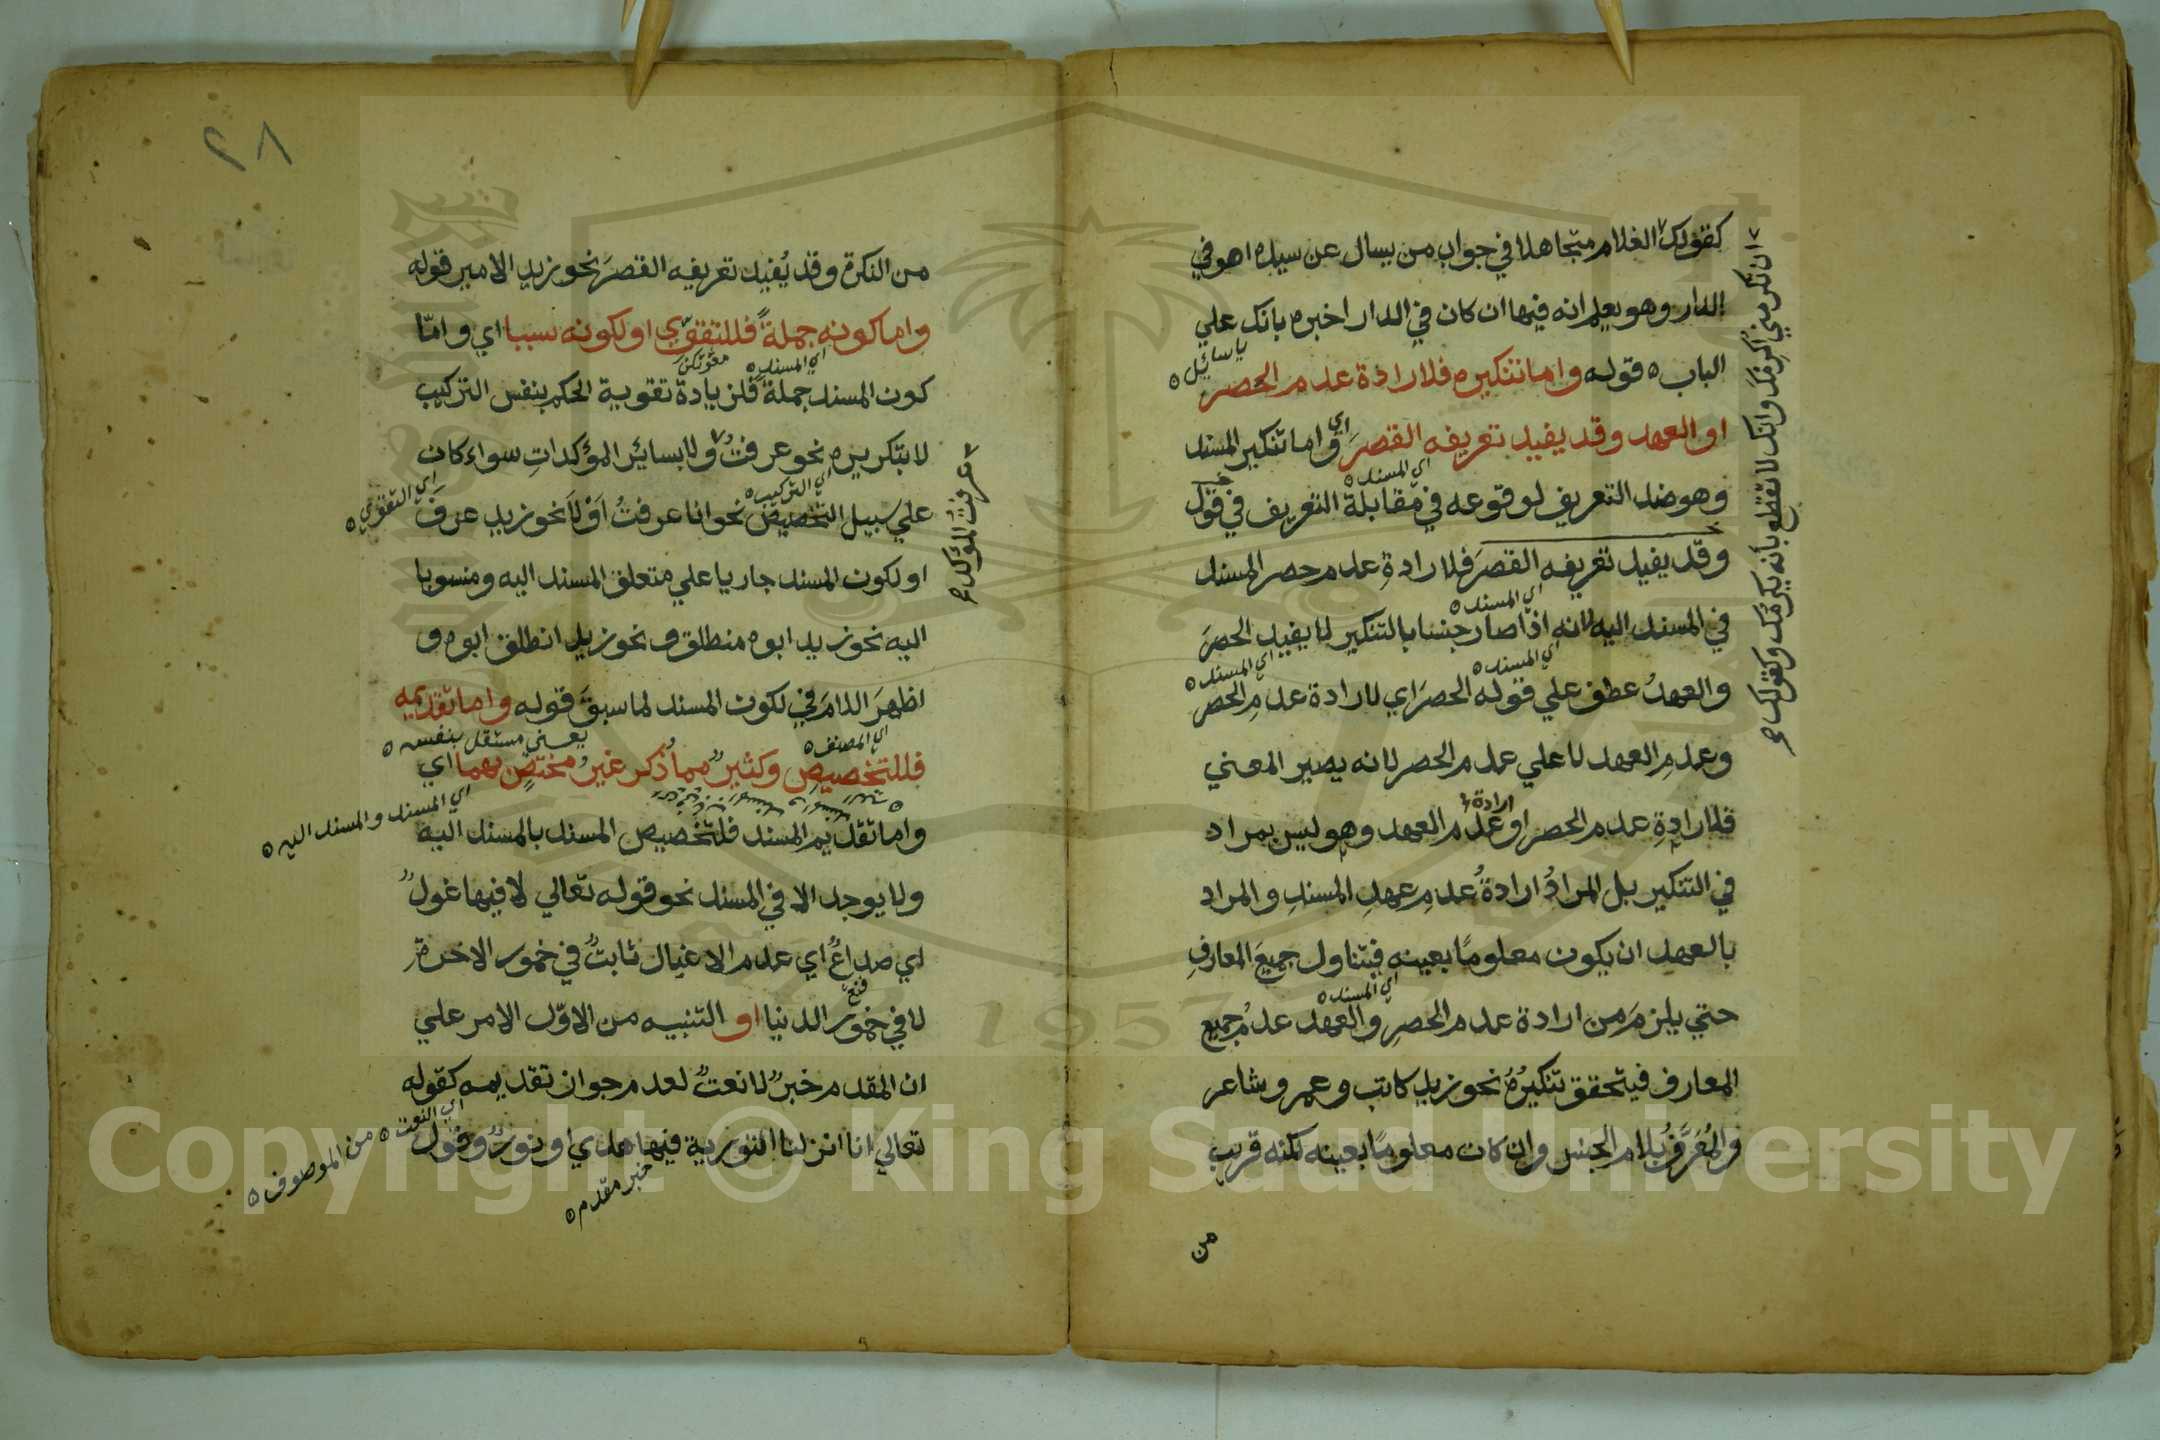 كقولك الغلام متجاهلا في جواب من يسال عن سيده اهو في
الدار وهو يعلم انه فيها ان كان في الدار اخبره بانك علي
الباب ه قوله واما تنكيره فلارادة عدم الحصر
يا سائل ه
او العهد وقد يفيد تعريفه القصرَ اي واما تنكير المسند
وهو ضد التعريف لوقوعه في مقابلة التعريف في قوله
اي المسند ه
وقد يفيد تعريفه القصرَ فلارادةِ عدم حصر المسند
في المسند اليه لانه اذا صار جنسا بالتنكير لا يفيد الحصرَ
اي المسند ه
والعهدُ عطف علي قوله الحصرَ اي لارادة عدمِ الحصر
اي المسند ه
اي المسند ه
وعدمِ العهد لا علي عدم الحصر لانه يصير المعني
فلارادةِ عدم الحصر او عدم العهد وهو ليس بمراد
ارادة
في التنكير بل المرادُ ارادةُ عدمِ عهدِ المسندِ والمراد
بالعهد ان يكون معلومًا بعينه فيتناول جميعَ المعارفِ
حتي يلزمَ من ارادة عدم الحصرِ والعهد عدمُ جميع
اي المسند ه
المعارف فيتحقق تنكيرُهُ نحو زيد كاتب وعمرو شاعر
والمُعَرَّفُ بلام الجنس وان كان معلومًا بعينه لكنه قريب
من
ان تكرمني اكرمك وانك لا تقطع بأنه يكرمك وكقولك
من النكرة وقد يُفيد تعريفه القصرَ نحو زيد الامير قوله
واما كونه جملةً فللتقوّي او لكونه سببا اي وامّا
كون المسند جملةً فلزيادة تقوية الحكم بنفس التركيب
اي المسند ه
لا بتكريره نحو عرفتُ ولا بسائر المؤكداتِ سواء كان
علي سبيل التخصيص نحو انا عرفتُ اَوْ لَا نحو زيد عرفَ
اي التركيب ه
اي التقوي ه
او لكون المسند جاريا علي متعلق المسند اليه ومنسوبا
اليه نحو زيد ابوه منطلق و نحو زيد انطلق ابوه و
اظهرَ اللامَ في لكون المسند لما سبقَ قوله واما تقديمه
فللتخصيصِ وكثيرٌ مما ذُكر غيرُ مختصٍ بهما اي
اي المصنف ه
يعني مستقل بنفسه ه
اي المسند والمسند اليه ه
واما تقديم المسند فلتخصيص المسند بالمسند اليه
ولا يوجد الا في المسند نحو قوله تعالي لا فيها غولٌ
اي صداعٌ اي عدم الاغتيال ثابتٌ في خمور الاخرةِ
لا في خمور الدنيا او التنبيه من الاوّل الامر علي
ان المقدم خبرٌ لا نعتٌ لعدم جواز تقديمه كقوله
اي النعت ه من الموصوف ه
تعالي انا انزلنا التورية فيها هدي او نورٌ وقول
خبر مقدم ه
عرفت المؤكد
٢٨
1957
Copyright © King Saud University